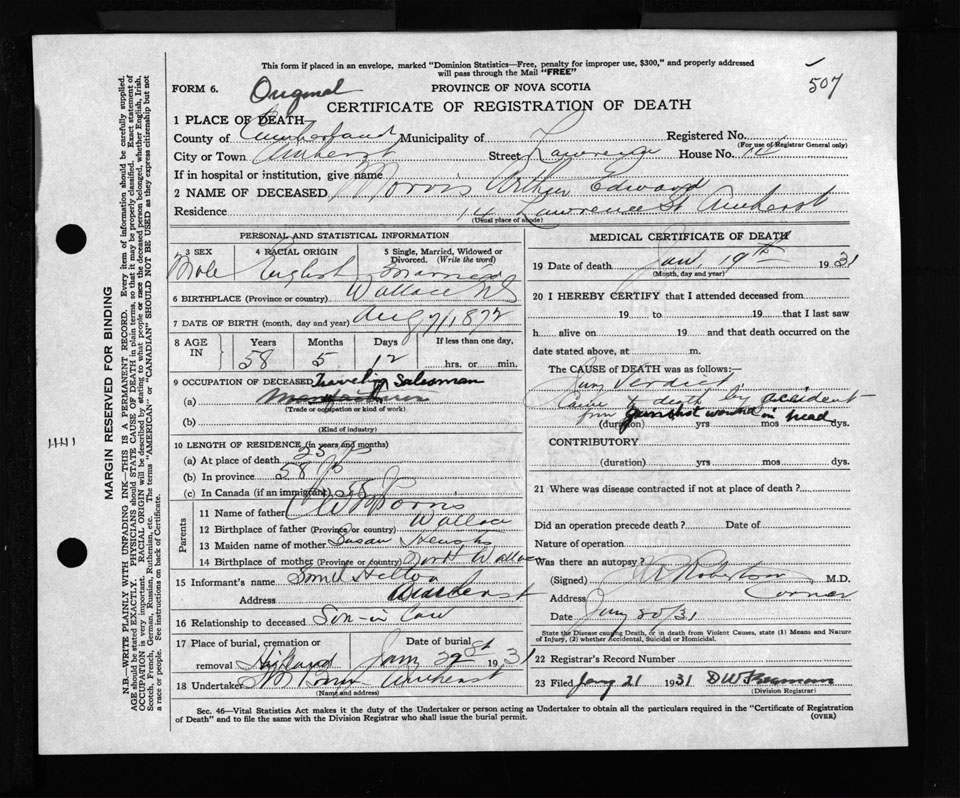 This form if placed in an envelope, marked "Dominion Statistics—Free, penalty for improper use, $300," and properly addressed
will pass through the Mail "FREE"
507
FORM 6. Original PROVINCE OF NOVA SCOTIA
CERTIFICATE OF REGISTRATION OF DEATH
1 PLACE OF DEATH
County of Cumberland Municipality of Registered No.
(For use of Registrar General only)
City or Town Amherst Street Lawrence House No. 14
If in hospital or institution, give name
2 NAME OF DECEASED Morris Arthur Edward
Residence 14 Lawrence St Amherst
(Usual place of abode)
PERSONAL AND STATISTICAL INFORMATION
3 SEX 4 RACIAL ORIGIN 5 Single, Married, Widowed or Divorced. (Write the word)
Male English Married
6 BIRTHPLACE (Province or country) Wallace NS
7 DATE OF BIRTH (month, day and year) Aug 7/1872
8 AGE IN Years Months Days If less than one day,
58 5 12 hrs. or min.
9 OCCUPATION OF DECEASED Traveling Salesman
(a)
(Trade or occupation or kind of work)
(b)
(Kind of industry)
10 LENGTH OF RESIDENCE (in years and months)
(a) At place of death
(b) In province 58
(c) In Canada (if an immigrant) 58
Parents
11 Name of father Morris
12 Birthplace of father (Province or country) Wallace
13 Maiden name of mother Susan
14 Birthplace of mother (Province or country) Wallace
15 Informant's name
Address Amherst
16 Relationship to deceased Son-in law
17 Place of burial, cremation or Date of burial
removal Highland Jan 1931
18 Undertaker Amherst
(Name and address)
MEDICAL CERTIFICATE OF DEATH
19 Date of death Jan 19th 1931
(Month, day and year)
20 I HEREBY CERTIFY that I attended deceased from
19 to 19 that I last saw
h alive on 19 and that death occurred on the
date stated above, at m.
The CAUSE OF DEATH was as follows:—
Jury Verdict
Came to death by accident
from gunshot wound in head
(duration) yrs mos dys.
CONTRIBUTORY
(duration) yrs. mos. dys.
21 Where was disease contracted if not at place of death?
Did an operation precede death? Date of
Nature of operation
Was there an autopsy?
(Signed) Robertson M.D.
Address Corner
Date Jany 20/31
State the Disease causing Death, or in death from Violent Causes, state (1) Means and Nature
of Injury, (2) whether Accidental, Suicidal or Homicidal.
22 Registrar's Record Number
23 Filed Jany 21 1931 D W Freeman
(Division Registrar)
Sec. 46—Vital Statistics Act makes it the duty of the Undertaker or person acting as Undertaker to obtain all the particulars required in the "Certificate of Registration
of Death" and to file the same with the Division Registrar who shall issue the burial permit. (OVER)
MARGIN RESERVED FOR BINDING
N.B.—WRITE PLAINLY WITH UNFADING INK—THIS IS A PERMANENT RECORD. Every item of information should be carefully supplied.
AGE should be stated EXACTLY. PHYSICIANS should STATE CAUSE OF DEATH in plain terms, so that it may be properly classified. Exact statement of
OCCUPATION is very important. RACIAL ORIGIN will be described by stating to what people or race the deceased person belonged, whether English, Irish,
Scotch, French, German, Russian, Ruthenian, etc. The terms "AMERICAN" or "CANADIAN" SHOULD NOT BE USED as they express citizenship but not
a race or people. See instructions on back of Certificate.